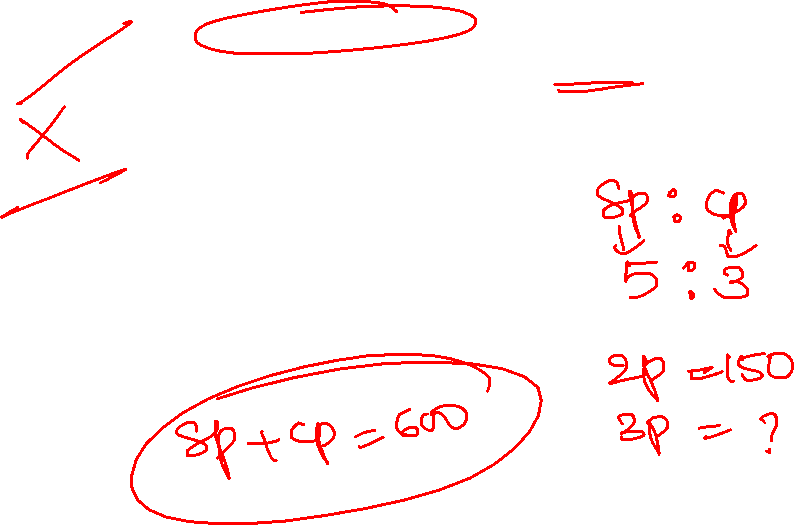 X
Sp : Cp
5 : 3
2p = 150
3p = ?
Sp + Cp = 600